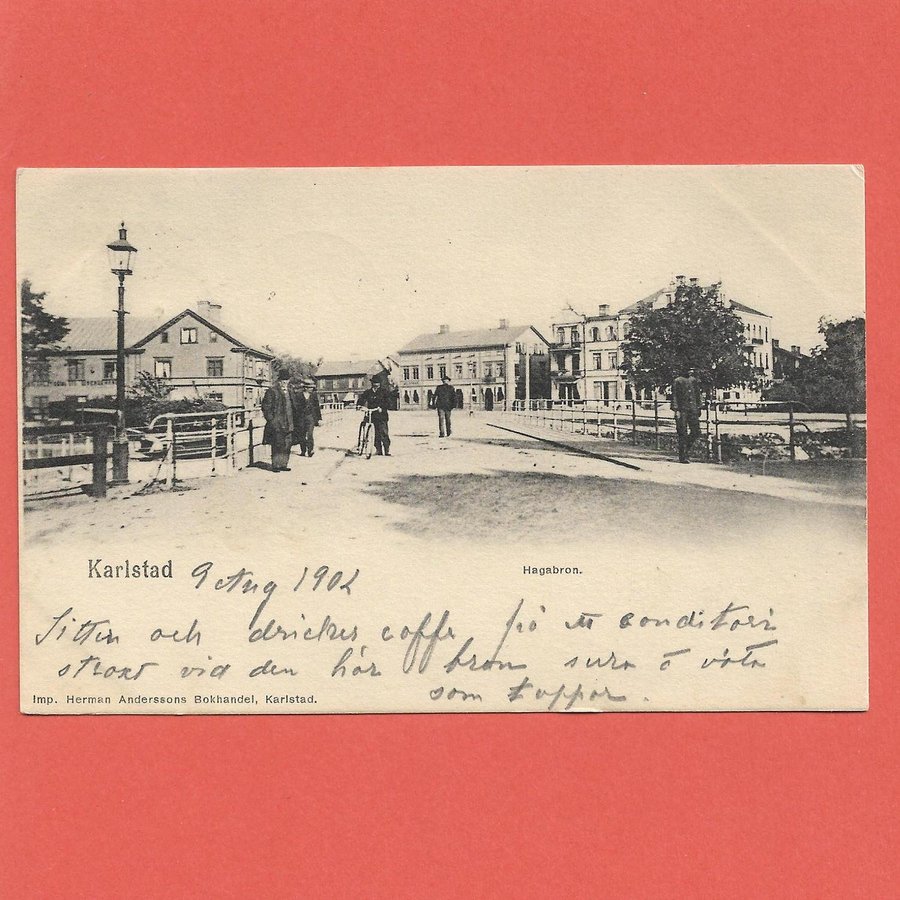 Karlstad 9 Aug 1902
Hagabron.
Sitter och dricker coffe på ett conditori
straxt vid den här bron sura o våta
som tuppar.
Imp. Herman Anderssons Bokhandel, Karlstad.